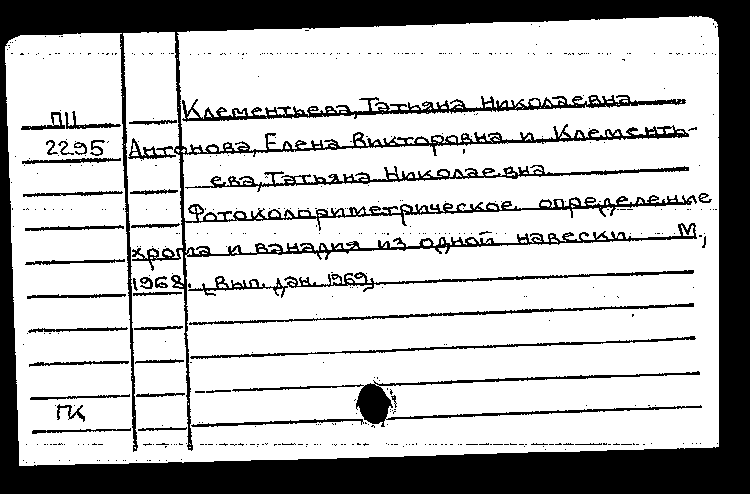 Клементьева, Татьяна Николаевна
П11
2295 Антонова, Елена Викторовна и Клементь-
ева, Татьяна Николаевна.
Фотоколориметрическое определение
хрома и ванадия из одной навески. М.,
1968. [Вып. дан. 1969]
ПК